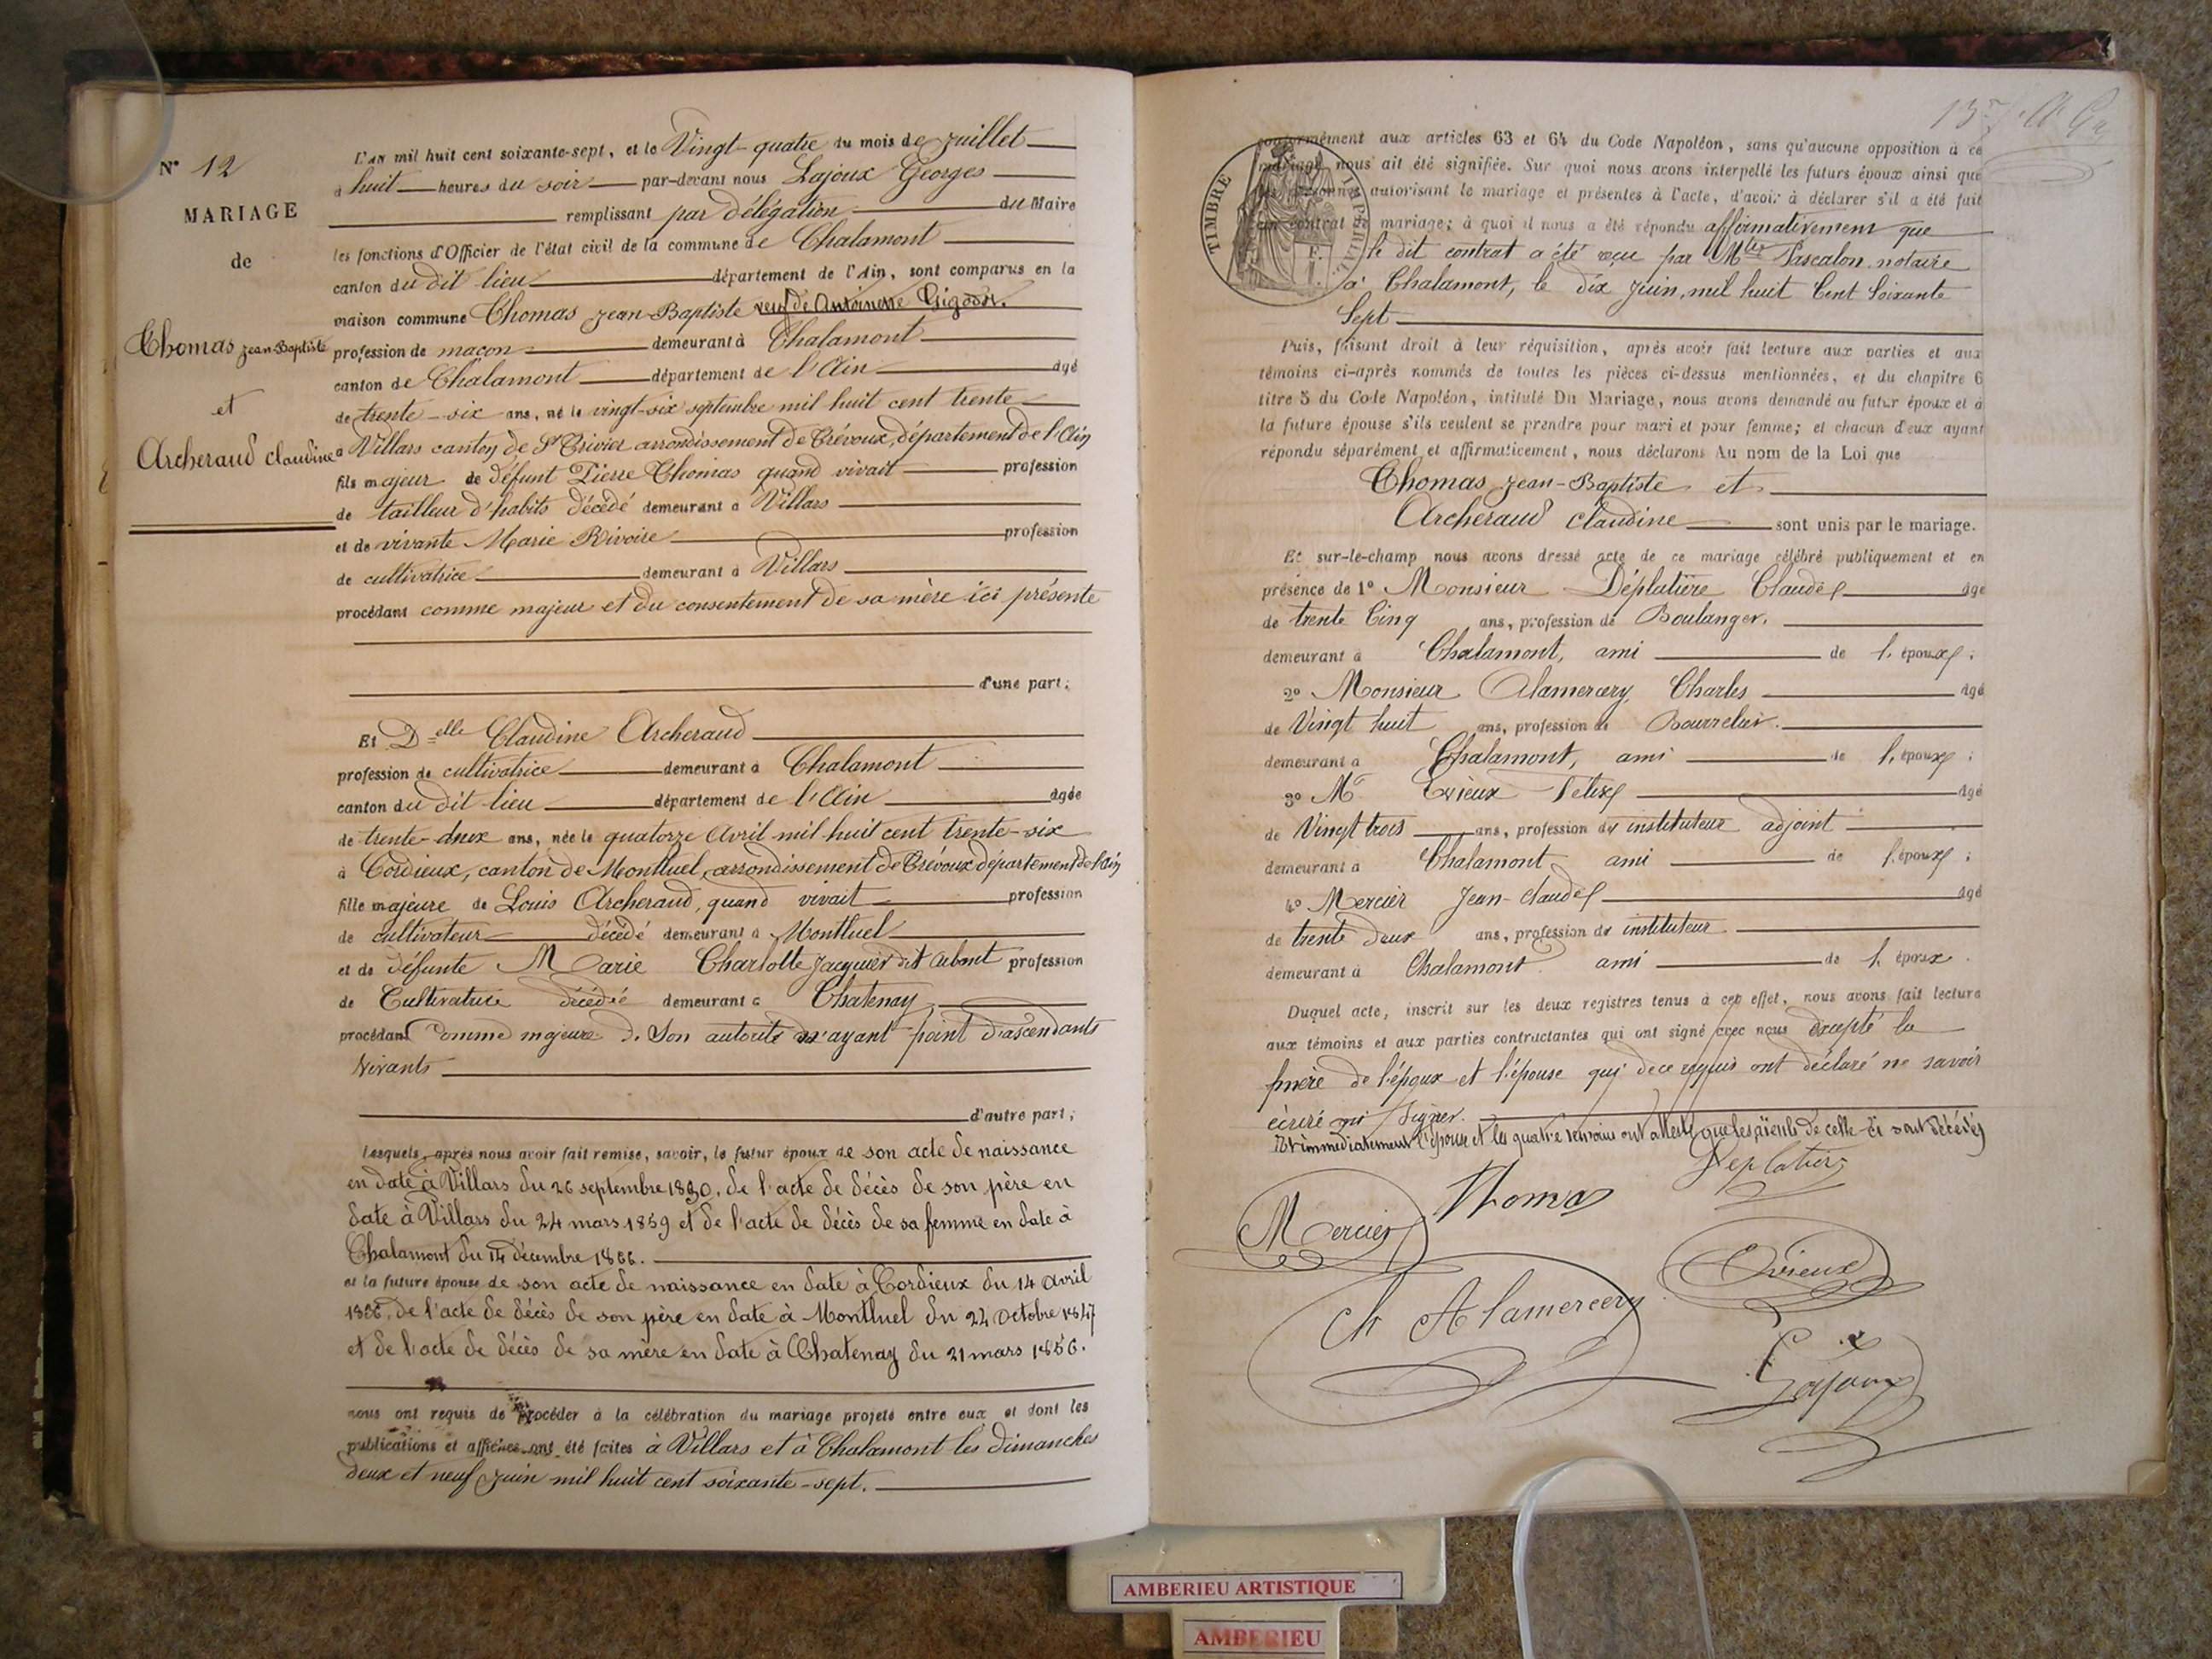 N° 12
MARIAGE
de
Thomas Jean-Baptiste
et
Archeraud Claudine
L'an mil huit cent soixante-sept, et le Vingt-quatre du mois de Juillet
à huit heures du soir par-devant nous Lajoux Georges
remplissant par délégation du Maire
les fonctions d'Officier de l'état civil de la commune de Chalamont
canton du dit lieu département de l'Ain, sont comparus en la
maison commune Thomas Jean-Baptiste veuf de Antoinette
profession de maçon demeurant à Chalamont
canton de Chalamont département de l'Ain âgé
de trente-six ans, né le vingt-six septembre mil huit cent trente
à Villars canton de St Trivier arrondissement de Trévoux, département de l'Ain
fils majeur de défunt Pierre Thomas quand vivait profession
de tailleur d'habits décédé demeurant à Villars
et de vivante Marie Rivoire profession
de cultivatrice demeurant à Villars
procédant comme majeur et du consentement de sa mère ici présente
d'une part;
Et Delle Claudine Archeraud
profession de cultivatrice demeurant à Chalamont
canton du dit lieu département de l'Ain âgée
de trente-deux ans, née le quatorze Avril mil huit cent trente-six
à Cordieux, canton de Montluel, arrondissement de Trévoux département de l'Ain
fille majeure de Louis Archeraud, quand vivait profession
de cultivateur décédé demeurant à Montluel
et de défunte Marie Charlotte Jacquier dit profession
de Cultivatrice décédée demeurant à Chatenay
procédant comme majeure de son autorité n'ayant point d'ascendants
vivants
d'autre part;
Lesquels, après nous avoir fait remise, savoir, le futur époux de son acte de naissance
en date à Villars du 26 septembre 1830, de l'acte de décès de son père en
date à Villars du 24 mars 1859 et de l'acte de décès de sa femme en date à
Chalamont du 14 décembre 1866.
et la future épouse de son acte de naissance en date à Cordieux du 14 avril
1836, de l'acte de décès de son père en date à Montluel du 22 octobre 1847
et de l'acte de décès de sa mère en date à Chatenay du 21 mars 1856.
nous ont requis de procéder à la célébration du mariage projeté entre eux et dont les
publications et affiches ont été faites à Villars et à Chalamont les dimanches
deux et neuf Juin mil huit cent soixante-sept.
TIMBRE IMPERIAL
conformément aux articles 63 et 64 du Code Napoléon, sans qu'aucune opposition à ce
mariage nous ait été signifiée. Sur quoi nous avons interpellé les futurs époux ainsi que
les personnes autorisant le mariage et présentes à l'acte, d'avoir à déclarer s'il a été fait
un contrat de mariage; à quoi il nous a été répondu affirmativement que
le dit contrat a été reçu par Pascalon notaire
à Chalamont, le dix Juin, mil huit Cent Soixante
Sept
Puis, faisant droit à leur réquisition, après avoir fait lecture aux parties et aux
témoins ci-après nommés de toutes les pièces ci-dessus mentionnées, et du chapitre 6
titre 5 du Code Napoléon, intitulé Du Mariage, nous avons demandé au futur époux et à
la future épouse s'ils veulent se prendre pour mari et pour femme; et chacun d'eux ayant
répondu séparément et affirmativement, nous déclarons Au nom de la Loi que
Thomas Jean-Baptiste et
Archeraud Claudine sont unis par le mariage.
Et sur-le-champ nous avons dressé acte de ce mariage célébré publiquement et en
présence de 1° Monsieur Déplatière Claude âgé
de trente Cinq ans, profession de Boulanger.
demeurant à Chalamont, ami de l'époux;
2° Monsieur Alamercery Charles âgé
de Vingt huit ans, profession de Bourrelier.
demeurant à Chalamont, ami de l'époux;
3° Mr Evieux Félix âgé
de Vingt trois ans, profession d'instituteur adjoint
demeurant à Chalamont ami de l'époux;
4° Mercier Jean-Claude âgé
de trente deux ans, profession d'instituteur
demeurant à Chalamont ami de l'époux.
Duquel acte, inscrit sur les deux registres tenus à cet effet, nous avons fait lecture
aux témoins et aux parties contractantes qui ont signé avec nous excepté la
mère de l'époux et l'épouse qui de ce requis ont déclaré ne savoir
écrire ni signer.
Et immédiatement l'épouse et les quatre témoins ont attesté que les aïeuls de celle-ci sont décédés
Deplatière
Thomas
Mercier
Evieux
Ch Alamercery
Lajoux
AMBERIEU ARTISTIQUE
AMBERIEU